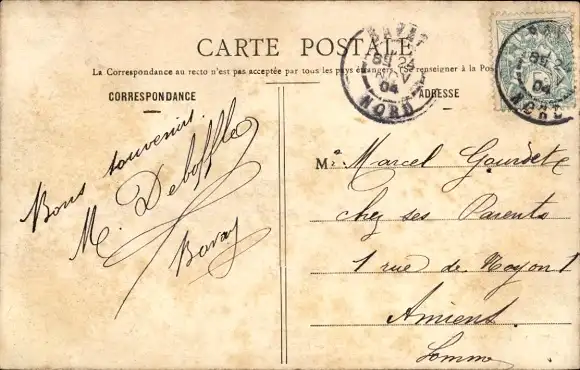 CARTE POSTALE
La Correspondance au recto n'est pas acceptée par tous les pays étrangers. Se renseigner à la Poste
CORRESPONDANCE
ADRESSE
BAVAY
8H 25
NOV
04
NORD
BAV
8H 2
04
NORD
5
Bons souvenirs
M. Deboffle
Bavay
M. Marcel Gourdet
chez ses Parents
1 rue de Noyon 1
Amiens
Somme